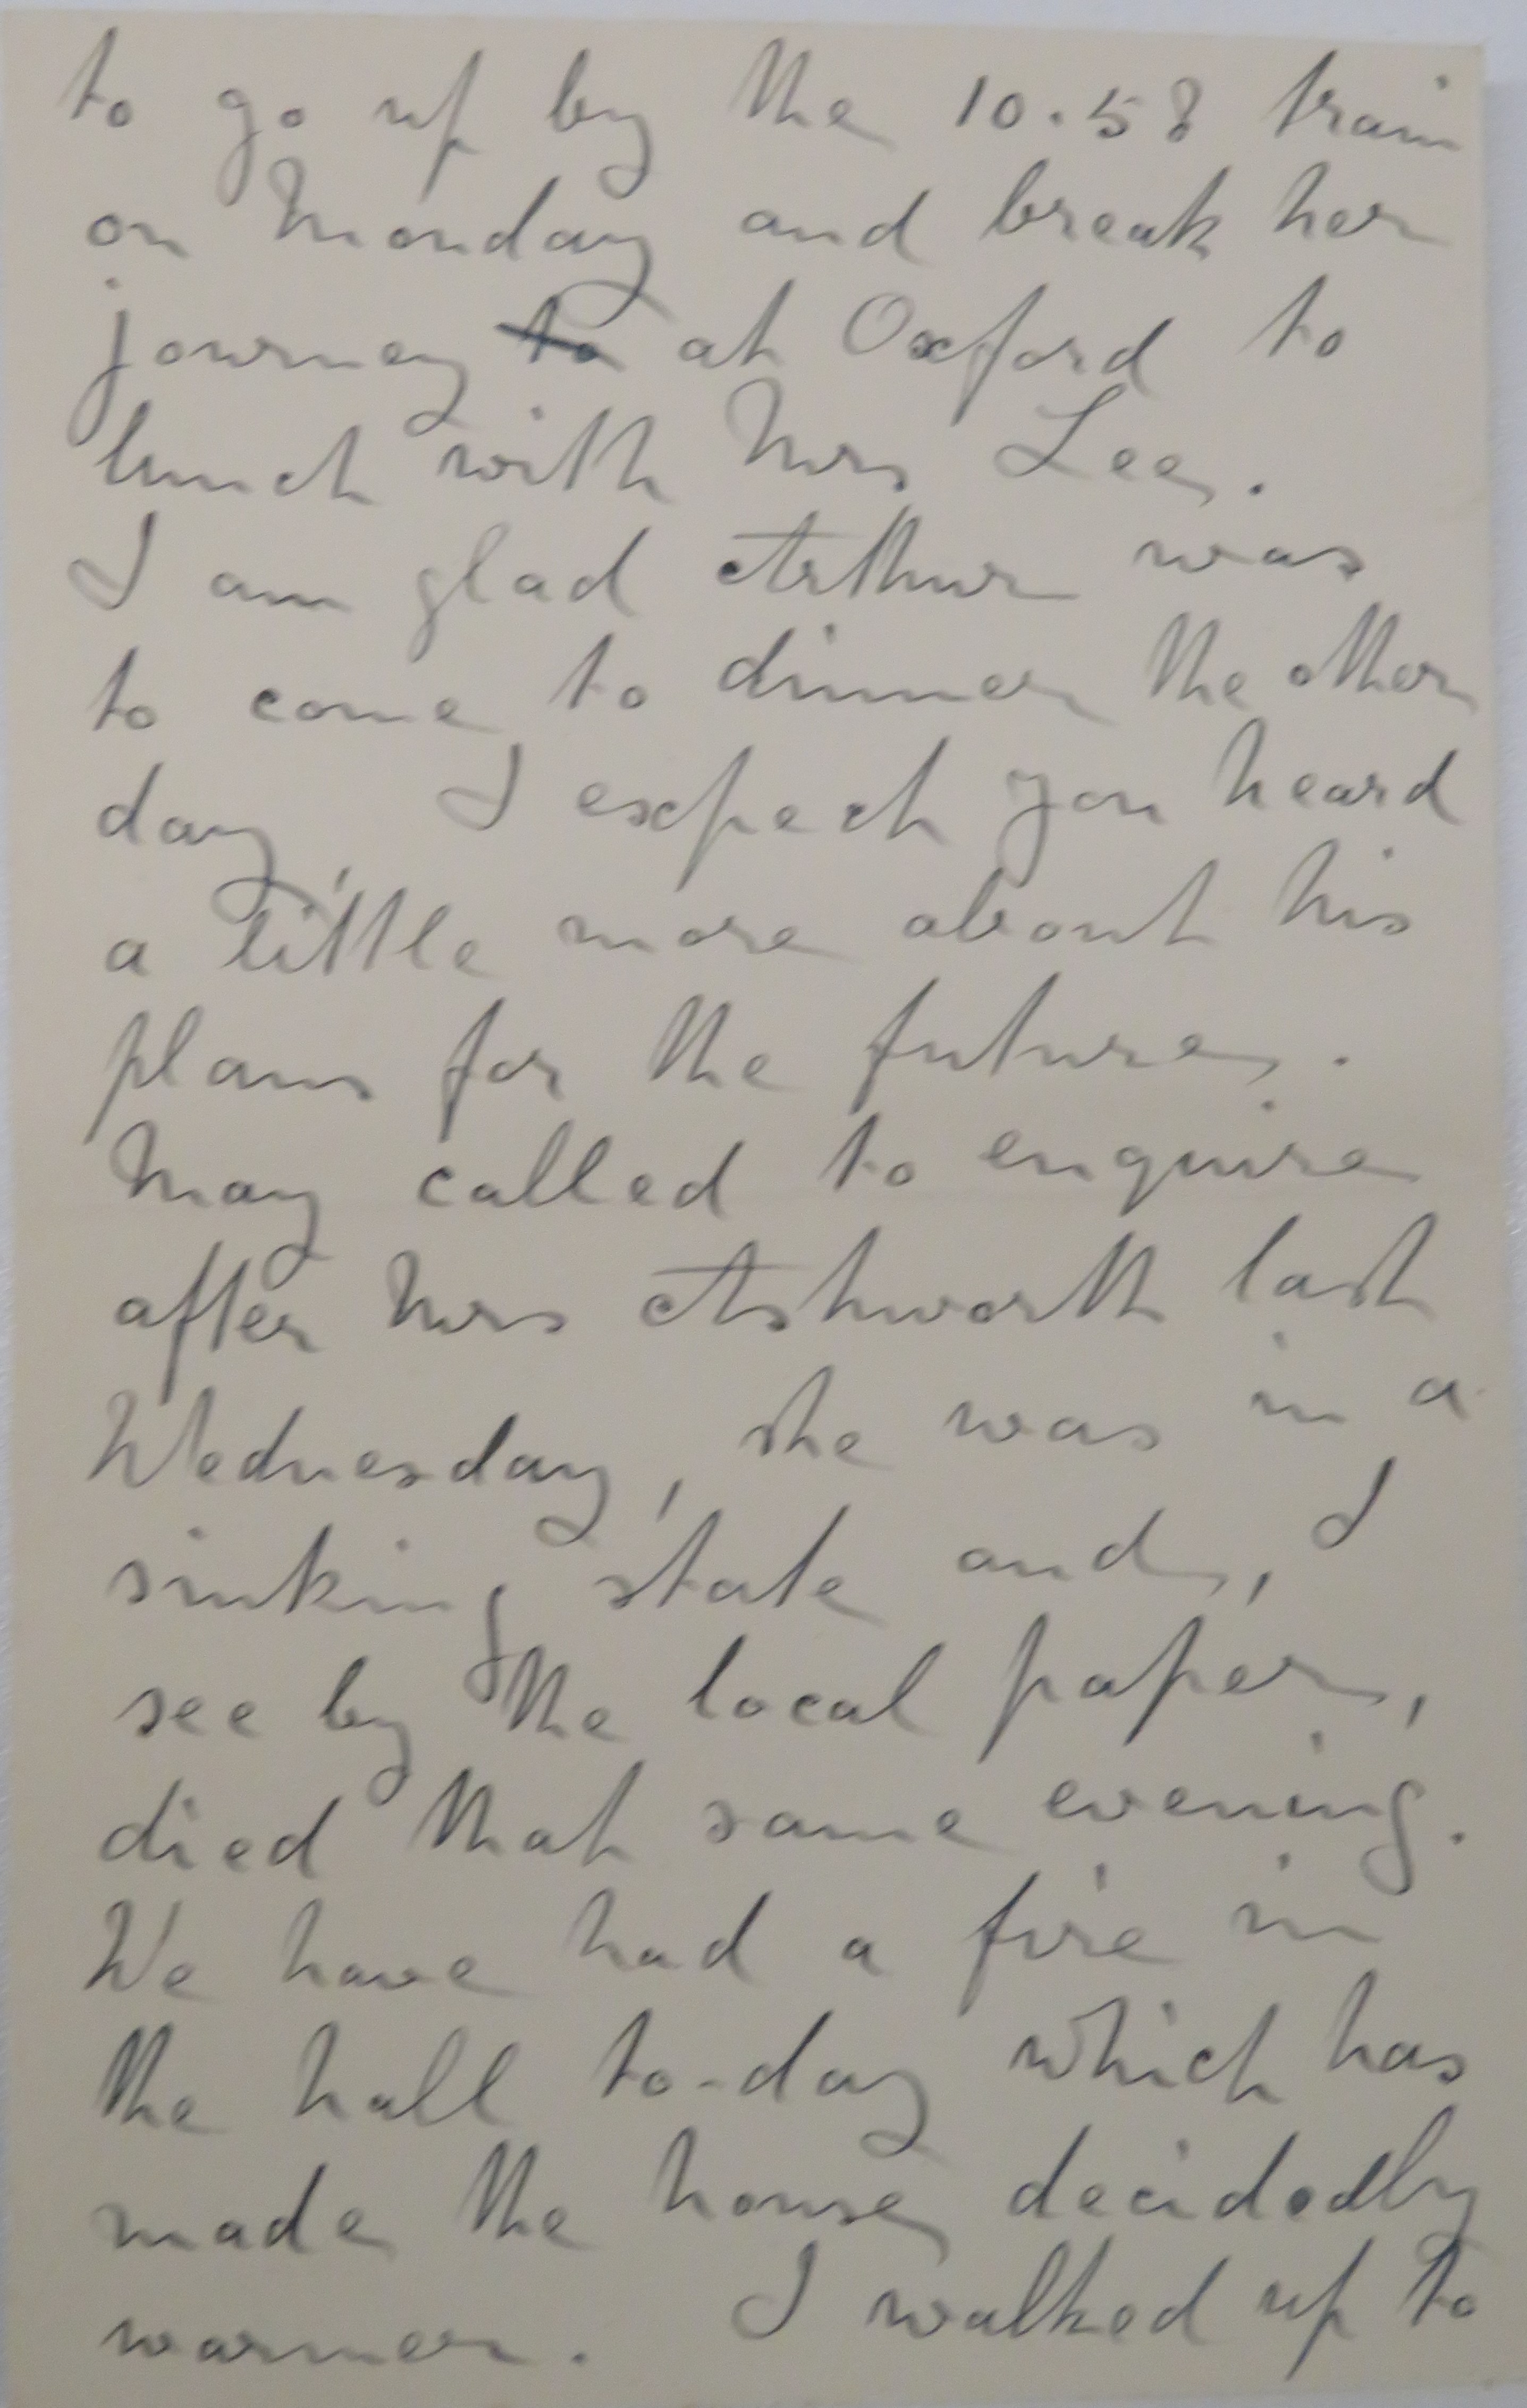 to go up by the 10.58 train
on Monday and break her
journey to at Oxford to
lunch with Mrs Lee.
I am glad Arthur was
to come to dinner the other
day, I expect you heard
a little more about his
plans for the future.
May called to enquire
after Mrs Ashworth last
Wednesday, she was in a
sinking state and, I
see by the local paper,
died that same evening.
We have had a fire in
the hall to-day which has
made the house decidedly
warmer. I walked up to